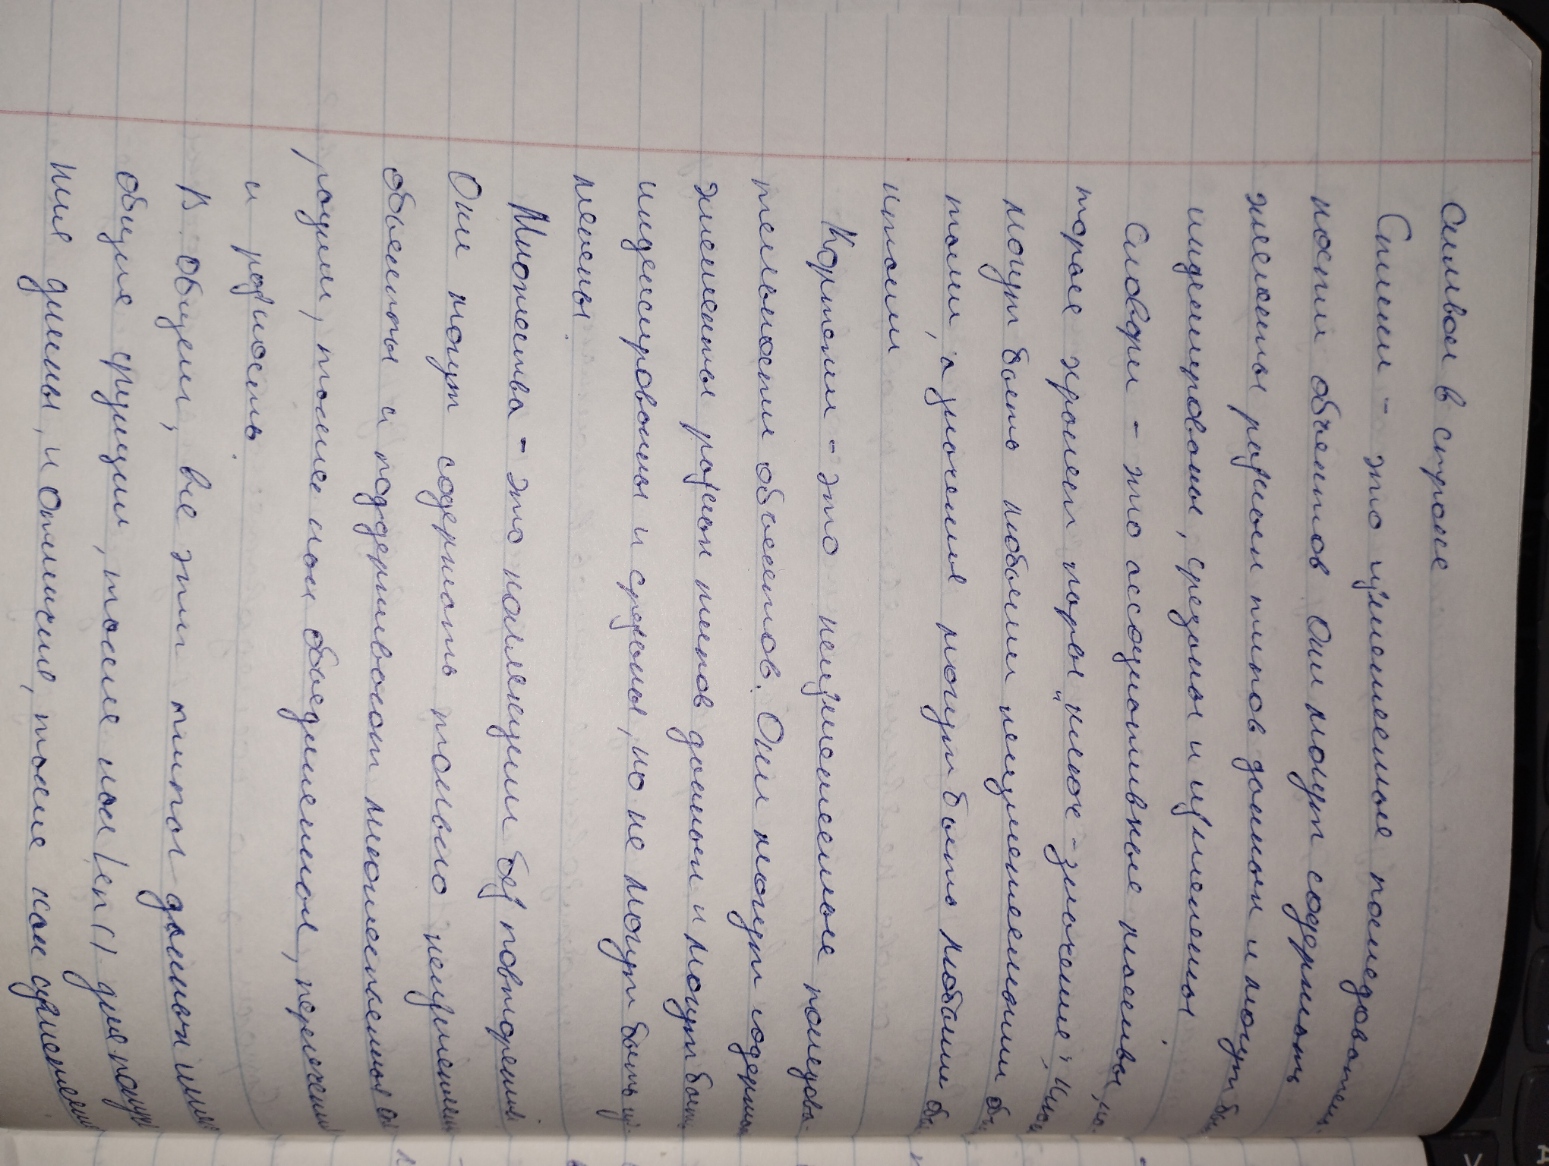 символ в строке
Списки - это изменяемые последователь-
ности объектов Они могут содержать
элементы разных типов данных и могут быть
индексированы, срезаны и изменены.
Словари - это ассоциативные массивы, ко-
торые хранят пары "ключ - значение", Ключи
могут быть любыми неизменяемыми объе
тами, а значения могут быть любыми объе
ктами
Кортежи - это неизменяемые последова-
тельности объектов. Они могут содержать
элементы разных типов данных и могут быть
индексированны и срезаны, но не могут быть из-
менены.
Множества - это коллекции без повторений
Они могут содержать только неизменяемы
объекты и поддерживают множественные опе
рации, такие как объединенная, пересечения
и разность.
В общем, все эти типы данных имею
общие функции, такие как len() для получе
ния длины, и отличия, такие как изменяемо